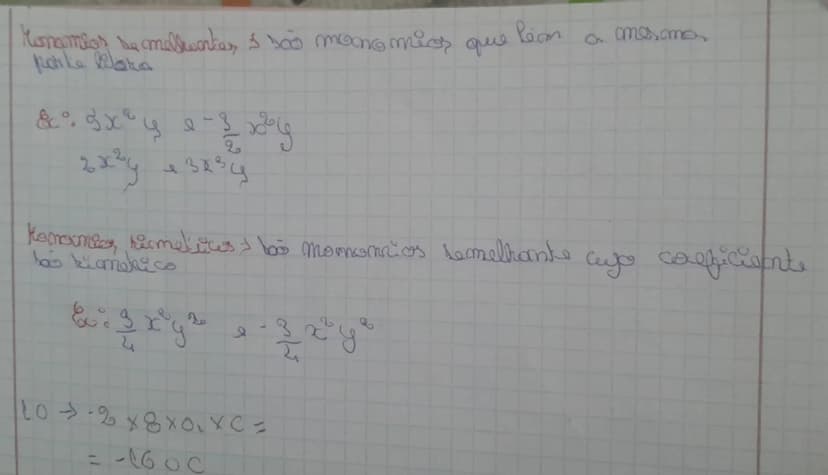 Monomios semelhantes > são monomios que têm a mesma
parte literal
Ex: 3x²y e -3/2 x²y
2x²y e 3x³y
Monomios simetricos > são monomios semelhante cujo coeficiente
são simetrico
Ex: 3/4 x²y² e -3/4 x²y²
10 → -2 × 8 × a × c =
= -16 a c